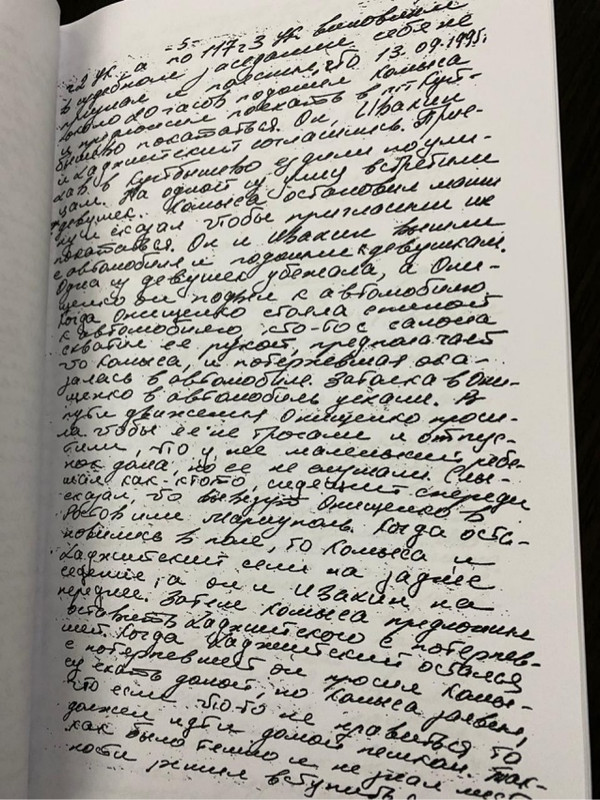 -5-
72 УК. а по 117 ч 3 УК виновным
в судебном заседании себя не
признал и пояснил, что 13.09.1995г.
около 20 часов подошел Комыса
и предложил поехать в пгт Куй-
бышево покататься. Он, Ивахин
и Хаджитский согласились. Прие-
хав в Куйбышево ездили по ули-
цам. На одной из улиц встретили
девушек. Комыса остановил маши-
ну и сказал чтобы пригласили их
покататься. Он и Ивахин вышли
с автомобиля и подошли к девушкам.
Одна из девушек убежала, а Они-
щенко он подвел к автомобилю.
Когда Онищенко стояла спиной
к автомобилю, кто-то с салона
схватил ее рукой, предполагает
что Комыса, и потерпевшая ока-
залась в автомобиле. Затаска в Они-
щенко в автомобиль уехали. В
пути движения Онищенко проси-
ла чтобы ее не трогали и отпус-
тили, что у нее маленький ребе-
нок дома, но ее не слушали. Слы-
шал как кто-то, сидящий спереди
сказал, что вывезут Онищенко в
Ростов или Мариуполь. Когда оста-
новились в поле, то Комыса и
Хаджитский сели на заднее
сидение, а он и Ивахин на
переднее. Затем Комыса предложил
оставить Хаджитского с потерпев-
шей. Когда Хаджитский остался
с потерпевшей он просил Комы-
су ехать домой, но Комыса заявил,
что если что-то не нравиться то
должен идти домой пешком. Так
как было темно и не знал мест-
ности, решил вступить